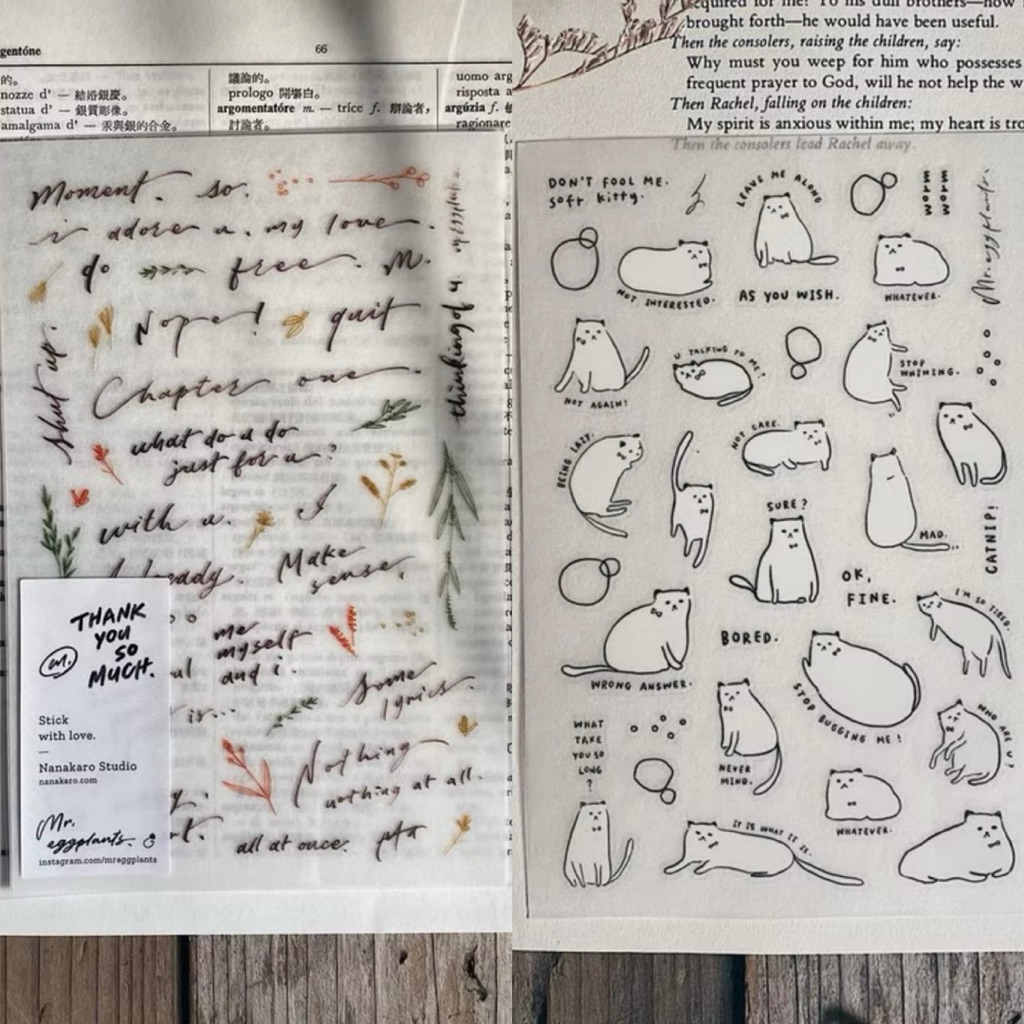 gentóne
66
的。
nozze d' — 結婚銀慶。
statua d' — 銀質彫像。
amalgama d' — 汞與銀的合金。
議論的。
prologo 開場白。
argomentatóre m. — trice f. 辯論者，
討論者。
uomo arg
risposta a
argúzia f.
ragionare
Moment. so.
i adore u. my love.
do free. M.
Nope! quit
shut up.
thinking of u.
Chapter one.
what do u do
just for u?
with u. I
Already. Make
sense,
me
myself
and i.
is...
some
lyrics.
Nothing
nothing at all.
all at once. pta
THANK
YOU
SO
MUCH.
m.
Stick
with love.
—
Nanakaro Studio
nanakaro.com
Mr.
eggplants.
instagram.com/mreggplants
equired for me? To his dull brothers—how
brought forth—he would have been useful.
Then the consolers, raising the children, say:
Why must you weep for him who possesses
frequent prayer to God, will he not help the w
Then Rachel, falling on the children:
My spirit is anxious within me; my heart is tro
Then the consolers lead Rachel away.
DON'T FOOL ME.
soft kitty.
LEAVE ME ALONE
Mr. eggplants.
NOT INTERESTED.
AS YOU WISH.
WHATEVER.
NOT AGAIN!
U TALKING TO ME?
STOP
WHINING.
BEING LAZY.
NOT CARE.
SURE?
MAD.
CATNIP!
OK,
FINE.
I'M SO TIRED.
BORED.
WRONG ANSWER.
STOP BUGGING ME!
WHAT
TAKE
YOU SO
LONG
?
NEVER
MIND.
WHO ARE U?
WHATEVER.
IT IS WHAT IT IS.